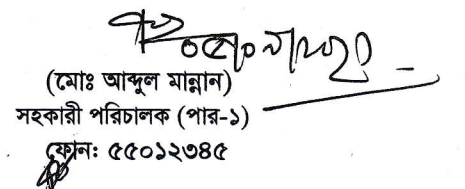 (মোঃ আব্দুল মান্নান)
সহকারী পরিচালক (পার-১)
ফোনঃ ৫৫০১২৩৪৫